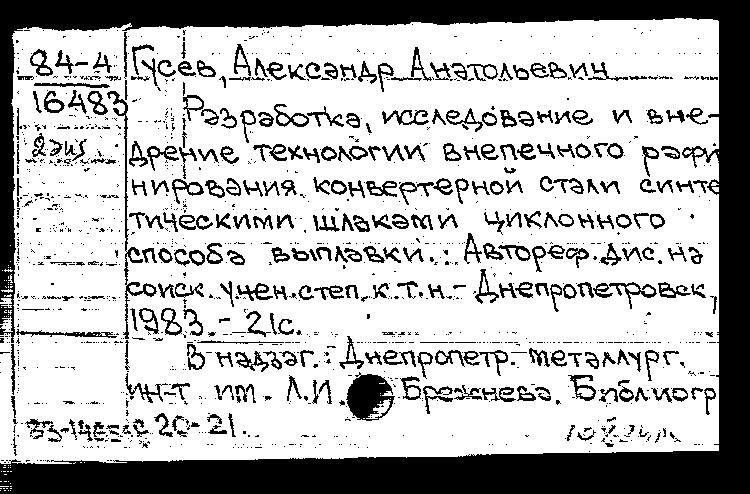 84-4
16483
2 экз
Гусев, Александр Анатольевич
Разработка, исследование и вне-
дрение технологии внепечного рафи
нирования конвертерной стали синте
тическими шлаками циклонного
способа выплавки.: Автореф. дис. на
соиск. учен. степ. к.т.н. - Днепропетровск,
1983. - 21с.
В надзаг.: Днепропетр. металлург.
ин-т им. Л.И. Брежнева. Библиогр
с 20-21.